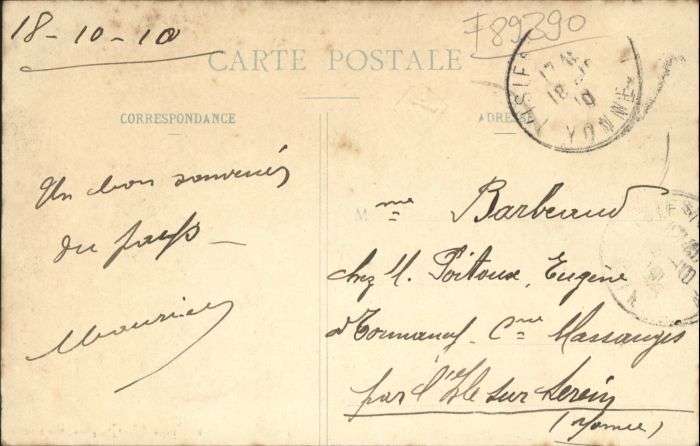 18-10-10
F89390
CARTE POSTALE
CORRESPONDANCE
ADRES
YONNE
17
18
10
Un bon souvenir
du pays
Maurice
Mme Barbeaud
chez M. Poitoux, Eugène
d'Tormancy. Cne Massangis
par l'Isle sur Serein
(Yonne)